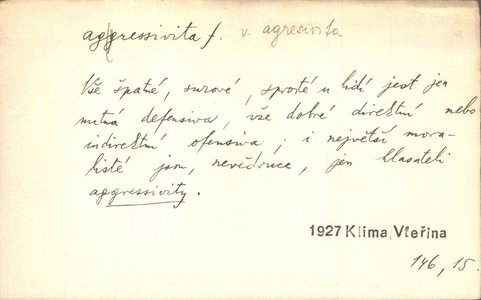 aggressivita f. v. agresivita
Vše špatné, surové, sprosté u lidí jest jen
nutná defensiva, vše dobré direktní nebo
indirektní ofensiva; i největší mora-
listé jsou, nevědouce, jen hlasateli
aggressivity.
1927 Klíma, Vteřina
146, 15.